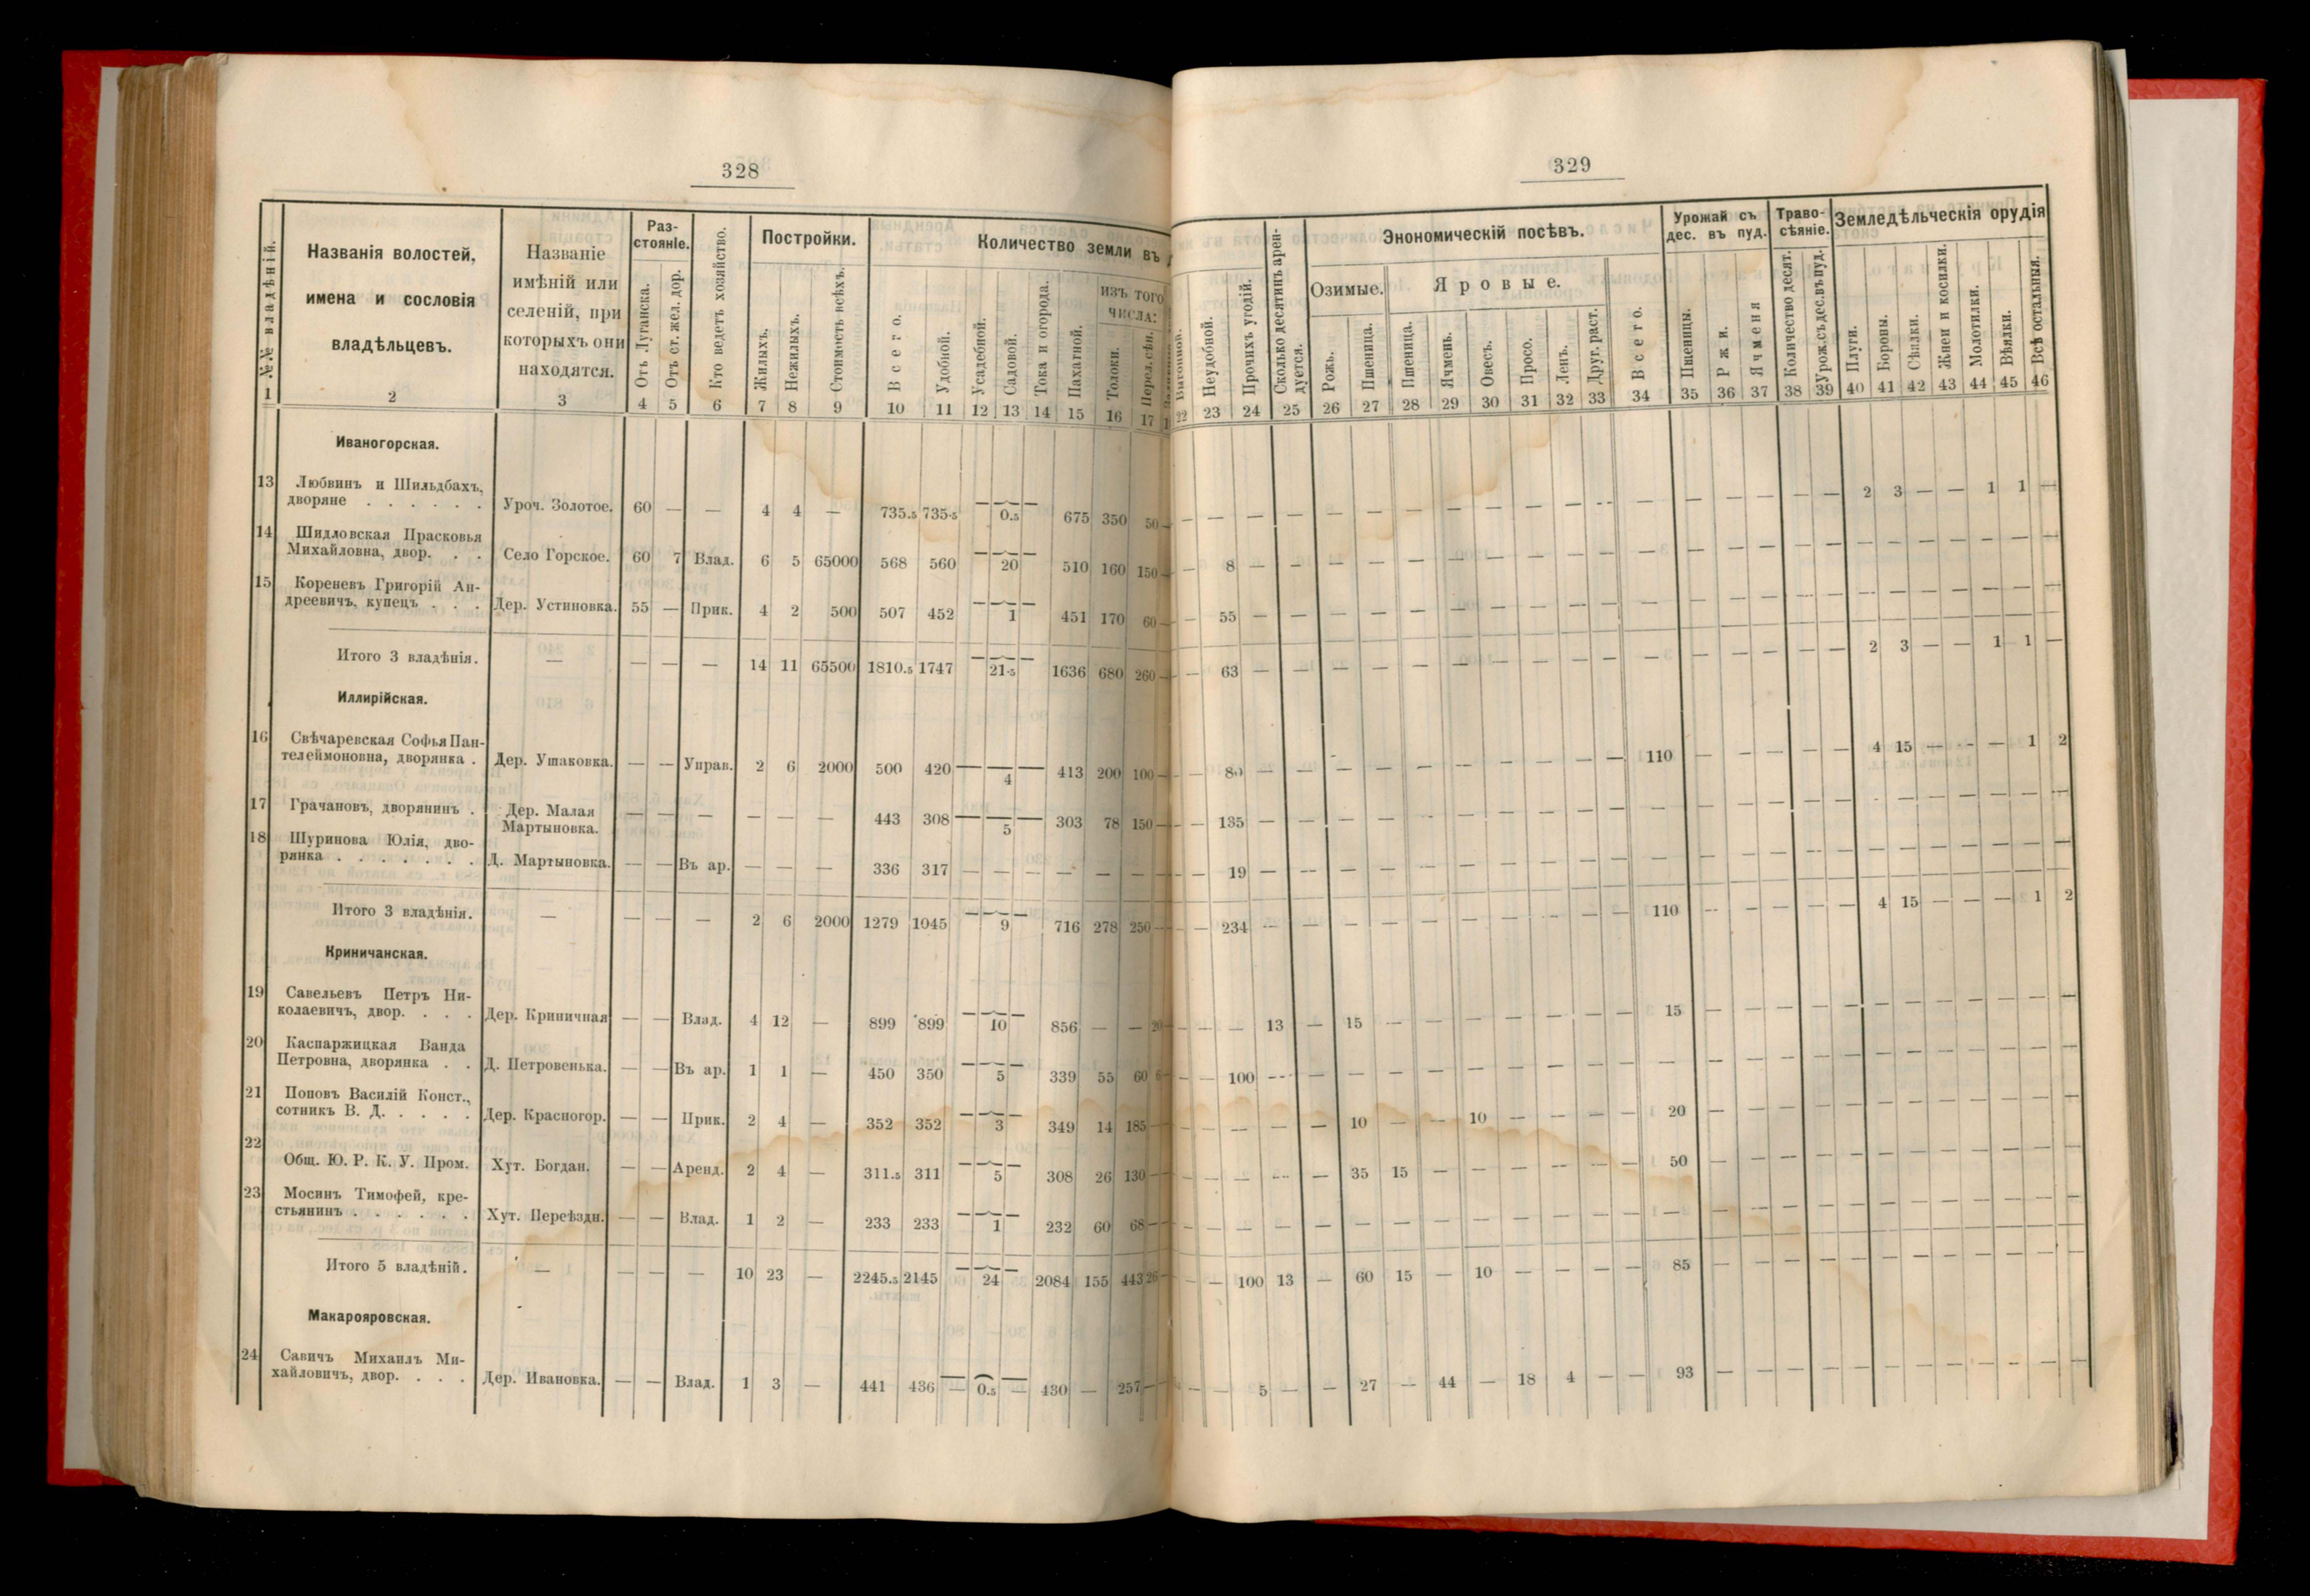 328
№№ владѣній.
Названія волостей, имена и сословія владѣльцевъ.
Названіе имѣній или селеній, при которыхъ они находятся.
Раз-стояніе.
Отъ Луганска.
Отъ ст. жел. дор.
Кто ведетъ хозяйство.
Постройки.
Жилыхъ.
Нежилыхъ.
Стоимость всѣхъ.
Количество земли въ
Всего.
Удобной.
Усадебной.
Садовой.
Тока и огорода.
Пахатной.
изъ того числа:
Толоки.
Перел. сѣн.
1 2 3 4 5 6 7 8 9 10 11 12 13 14 15 16 17
Иваногорская.
13 Любвинъ и Шильдбахъ,
дворяне . . . . . . Уроч. Золотое. 60 — — 4 4 — 735.5 735.5 — 0.5 — 675 350 50
14 Шидловская Прасковья
Михайловна, двор. . . Село Горское. 60 7 Влад. 6 5 65000 568 560 — 20 — 510 160 150
15 Кореневъ Григорій Ан-
дреевичъ, купецъ . . . Дер. Устиновка. 55 — Прик. 4 2 500 507 452 — 1 — 451 170 60
Итого 3 владѣнія. — — — — 14 11 65500 1810.5 1747 — 21.5 — 1636 680 260
Иллирійская.
16 Свѣчаревская Софья Пан-
телеймоновна, дворянка . Дер. Ушаковка. — — Управ. 2 6 2000 500 420 — 4 — 413 200 100
17 Грачановъ, дворянинъ . Дер. Малая
Мартыновка. — — — — — — 443 308 — 5 — 303 78 150
18 Шуринова Юлія, дво-
рянка . . . . . . . Д. Мартыновка. — — Въ ар. — — — 336 317 — — — — — —
Итого 3 владѣнія. — — — — 2 6 2000 1279 1045 — 9 — 716 278 250
Криничанская.
19 Савельевъ Петръ Ни-
колаевичъ, двор. . . . Дер. Криничная — — Влад. 4 12 — 899 899 — 10 — 856 — — 20
20 Каспаржицкая Ванда
Петровна, дворянка . . Д. Петровенька. — — Въ ар. 1 1 — 450 350 — 5 — 339 55 60 6
21 Поповъ Василій Конст.,
сотникъ В. Д. . . . . Дер. Красногор. — — Прик. 2 4 — 352 352 — 3 — 349 14 185
22
Общ. Ю. Р. К. У. Пром. Хут. Богдан. — — Аренд. 2 4 — 311.5 311 — 5 — 308 26 130
23 Мосинъ Тимофей, кре-
стьянинъ . . . . . . Хут. Переѣздн. — — Влад. 1 2 — 233 233 — 1 — 232 60 68
Итого 5 владѣній. — — — — 10 23 — 2245.5 2145 — 24 — 2084 155 443 26
Макарояровская.
24 Савичъ Михаилъ Ми-
хайловичъ, двор. . . . Дер. Ивановка. — — Влад. 1 3 — 441 436 — 0.5 — 430 — 257
329
Выгонной.
Неудобной.
Прочихъ угодій.
Сколько десятинъ арен-дуется.
Экономическій посѣвъ.
Озимые.
Рожь.
Пшеница.
Яровые.
Пшеница.
Ячмень.
Овесъ.
Просо.
Ленъ.
Друг. раст.
Всего.
Урожай съ дес. въ пуд.
Пшеницы.
Ржи.
Ячменя
Траво-сѣяніе.
Количество десят.
Урож. съ дес. въ пуд.
Земледѣльческія орудія
Плуги.
Бороны.
Сѣялки.
Жнеи и косилки.
Молотилки.
Вѣялки.
Всѣ остальныя.
22 23 24 25 26 27 28 29 30 31 32 33 34 35 36 37 38 39 40 41 42 43 44 45 46
— — — — — — — — — — — — — — — — — — 2 3 — — 1 1 —
— 8 — — — — — — — — — — — — — — — — — — — — — — —
— 55 — — — — — — — — — — — — — — — — — — — — — — —
— 63 — — — — — — — — — — — — — — — — 2 3 — — 1 1 —
— 80 — — — — — — — — — — 110 — — — — — 4 15 — — — 1 2
— 135 — — — — — — — — — — — — — — — — — — — — — — —
— 19 — — — — — — — — — — — — — — — — — — — — — — —
— 234 — — — — — — — — — — 110 — — — — — 4 15 — — — 1 2
— — — 13 — 15 — — — — — — 15 — — — — — — — — — — — —
— — 100 — — — — — — — — — — — — — — — — — — — — — —
— — — — — 10 — — 10 — — — 20 — — — — — — — — — — — —
— — — — — 35 15 — — — — — 50 — — — — — — — — — — — —
— — — — — — — — — — — — — — — — — — — — — — — — —
— — 100 13 — 60 15 — 10 — — — 85 — — — — — — — — — — — —
— — 5 — — 27 — 44 — 18 4 — — 93 — — — — — — — — — — — —